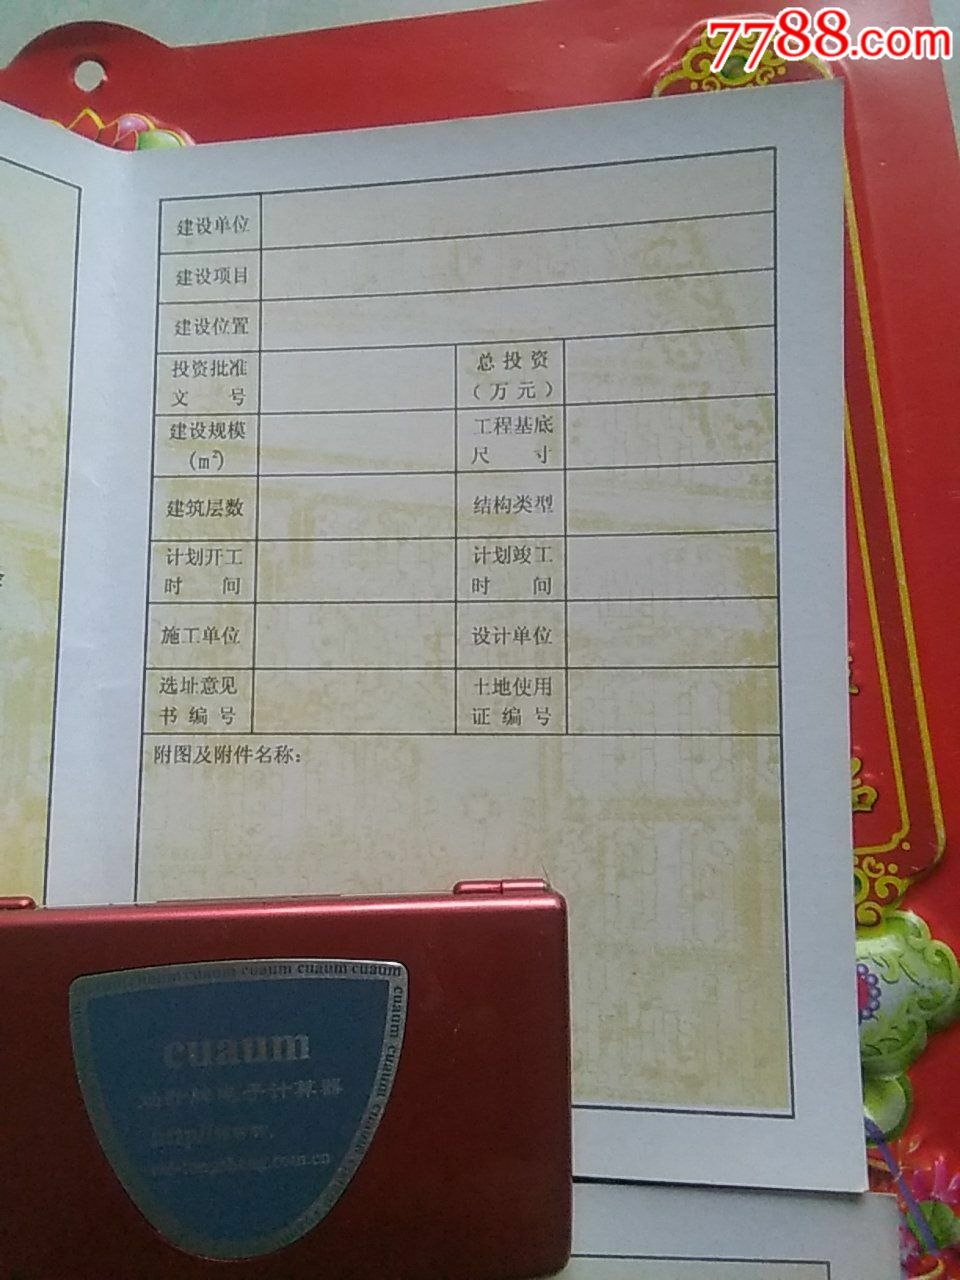 7788.com
建设单位
建设项目
建设位置
投资批准
文 号
总投资
(万元)
建设规模
(m²)
工程基底
尺 寸
建筑层数
结构类型
计划开工
时 间
计划竣工
时 间
施工单位
设计单位
选址意见
书编号
土地使用
证编号
附图及附件名称:
cuaum cuaum cuaum cuaum
cuaum cuaum cuaum
cuaum
电子计算器